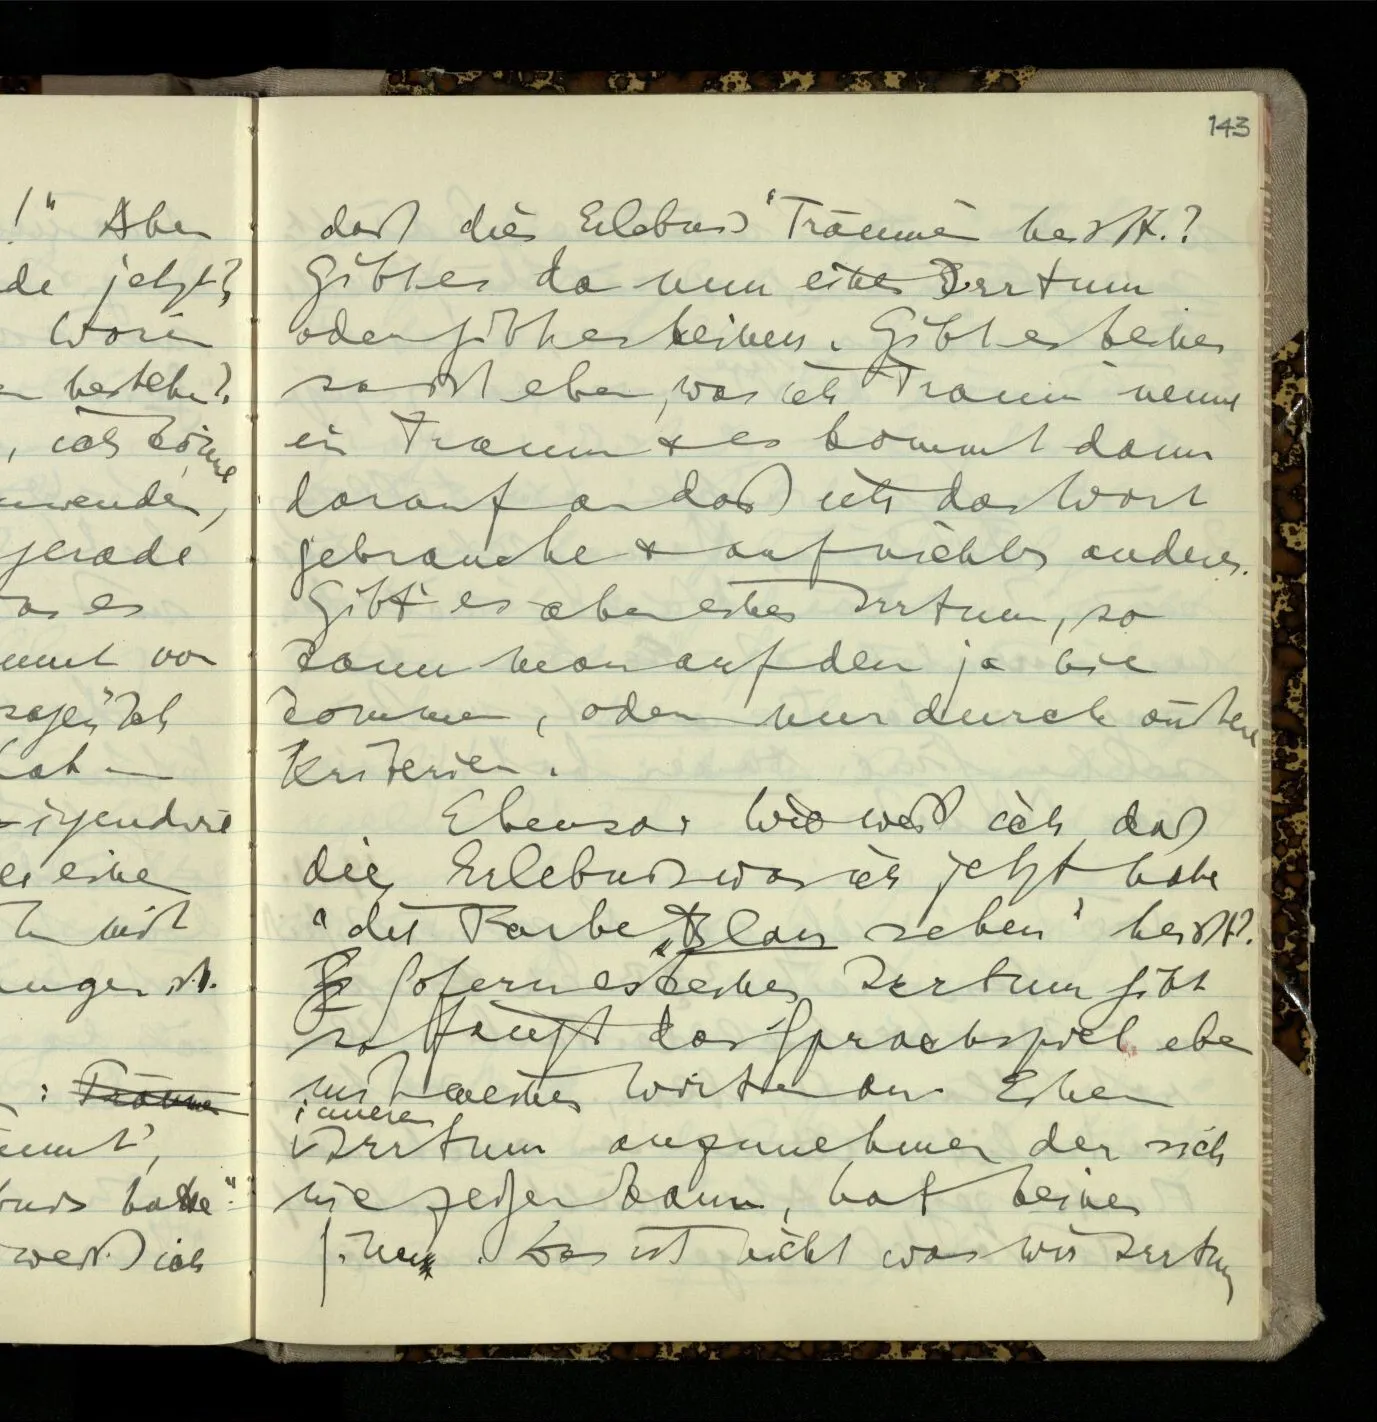 143
!" Aber
de jetzt?
Worin
bestehn?
, ich könne
wenden,
gerade
as es
vor
sagen "Ich
hat
irgendwie
eine
nicht
ist.
: Träumen
,
hatte":
weiß ich
daß dies Erlebnis 'Träumen' heißt.?
Gibt es da nun einen Irrtum
oder gibt es keinen. Gibt es keinen
so ist eben, was ich Traum nenne
ein Traum & es kommt dann
darauf an daß ich das Wort
gebrauche & auf nichts anderes.
Gibt es aber einen Irrtum, so
kann man auf den ja nie
kommen, oder nur durch äußere
Kriterien.
Ebenso: Wie weiß ich daß
die Erlebnis was ich jetzt habe
"die Farbe Blau sehen" heißt?
Sofern es keinen Irrtum gibt
so fängt das Sprachspiel eben
mit Worten an. Einen
inneren
Irrtum anzunehmen der sich
nie zeigen kann, hat keinen
Sinn. Das ist nicht was wir Irrtum